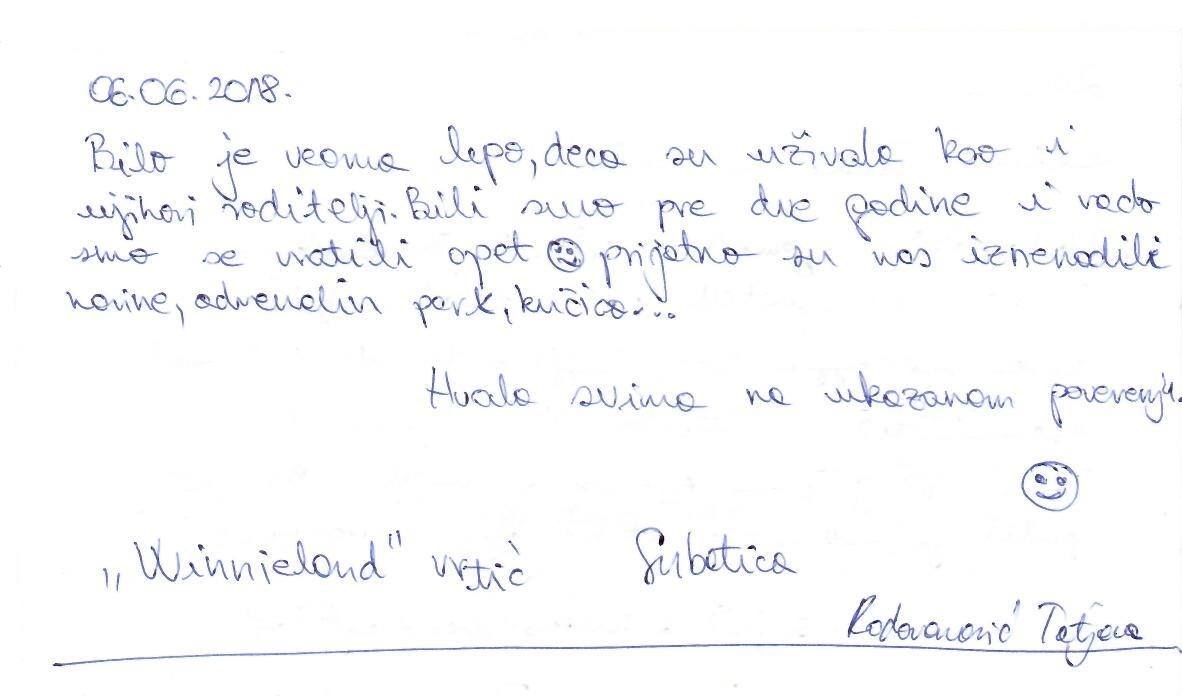 06.06.2018.
Bilo je veoma lepo, deca su uživala kao i
njihovi roditelji. Bili smo pre dve godine i rado
smo se vratili opet ☺ prijatno su nas iznenadili
novine, adrenalin park, kućica...
Hvala svima na ukazanom poverenju.
☺
„Winnieland" vrtić Subotica
Radovanović Tatjana